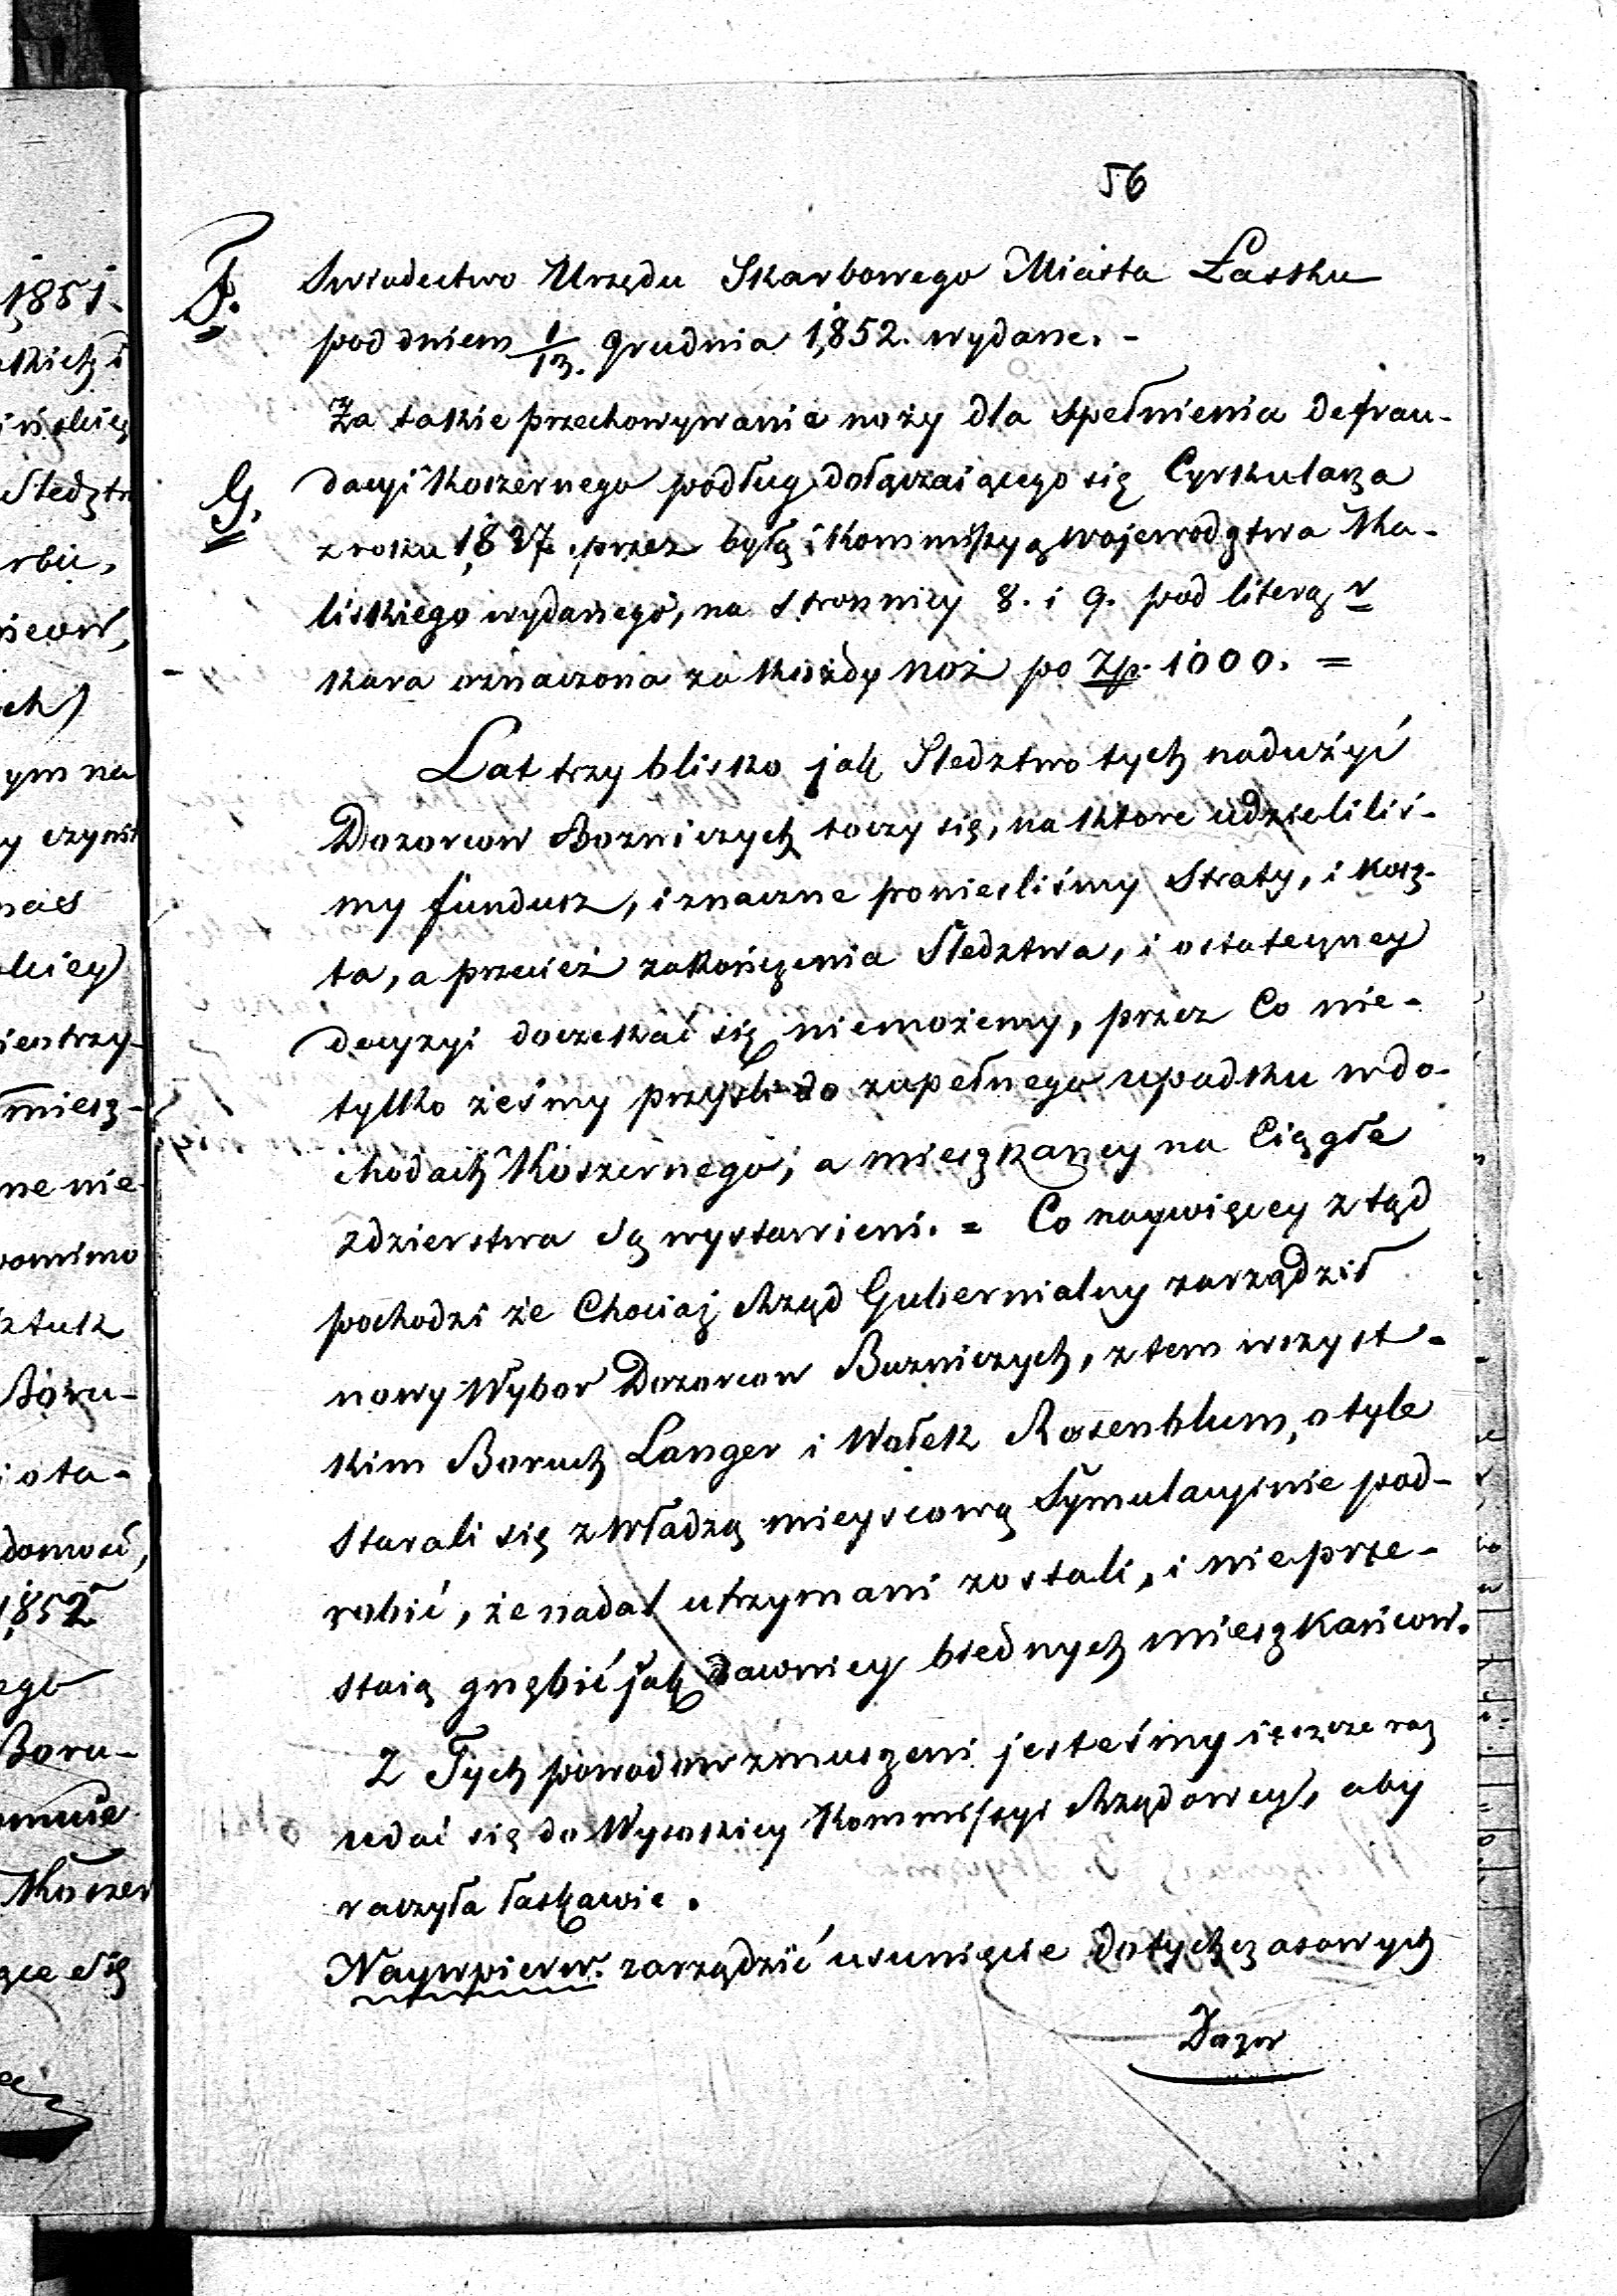 56
F. Swiadectwo Urzędu Skarbowego Miasta Łasku
pod dniem 1/13. Grudnia 1852. wydane. -
Za takie przechowywanie noży dla spełnienia defrau-
G. dacyi Koszernego podług dołączaiącego się Cyrkularza
z roku 1837. przez byłą Kommissyą Wojewodztwa Ka-
liskiego wydanego, na stronnicy 8. i 9. pod literą r
kara oznaczona za każdy noż po Zp. 1000. =
Lat trzy blisko jak Sledztwo tych nadużyć
Dozorcow Bozniczych toczy się, na ktore udzieliliś-
my fundusz, i znaczne ponieśliśmy Straty, i kosz-
ta, a przecież zakończenia Sledztwa, i ostateczney
decyzyi doczekać się niemożemy, przez Co nie-
tylko żeśmy przyszli do zupełnego upadku w do-
chodach Koszernego, a mieszkańcy na Ciągłe
zdzierstwa są wystawieni. = Co naywięcey ztąd
pochodzi że Chociaż Rząd Gubernialny zarządził
nowy Wybor Dozorcow Buzniczych, z tem wszyst-
kim Boruch Langer i Wołek Rosenblum, o tyle
Starali się z Władzą mieyscową Symulacyinie pod-
robić, że nadal utrzymani zostali, i nieprze-
staią gnębić jak dawniey biednych mieszkańcow.
Z Tych powodow zmuszeni jesteśmy ieszcze raz
udać się do Wysokiey Kommissyi Rządowey, aby
raczyła łaskawie.
Naywpierw. zarządzić usunięcie dotychczasowych
Dozor
1851.
Sledzt
ych)
ym na
y czynst
ientrzy-
miesz-
ne nie
pomimo
sztuk
Boru-
i ota-
domość,
1852
ego
Boru-
Koszer
ące się